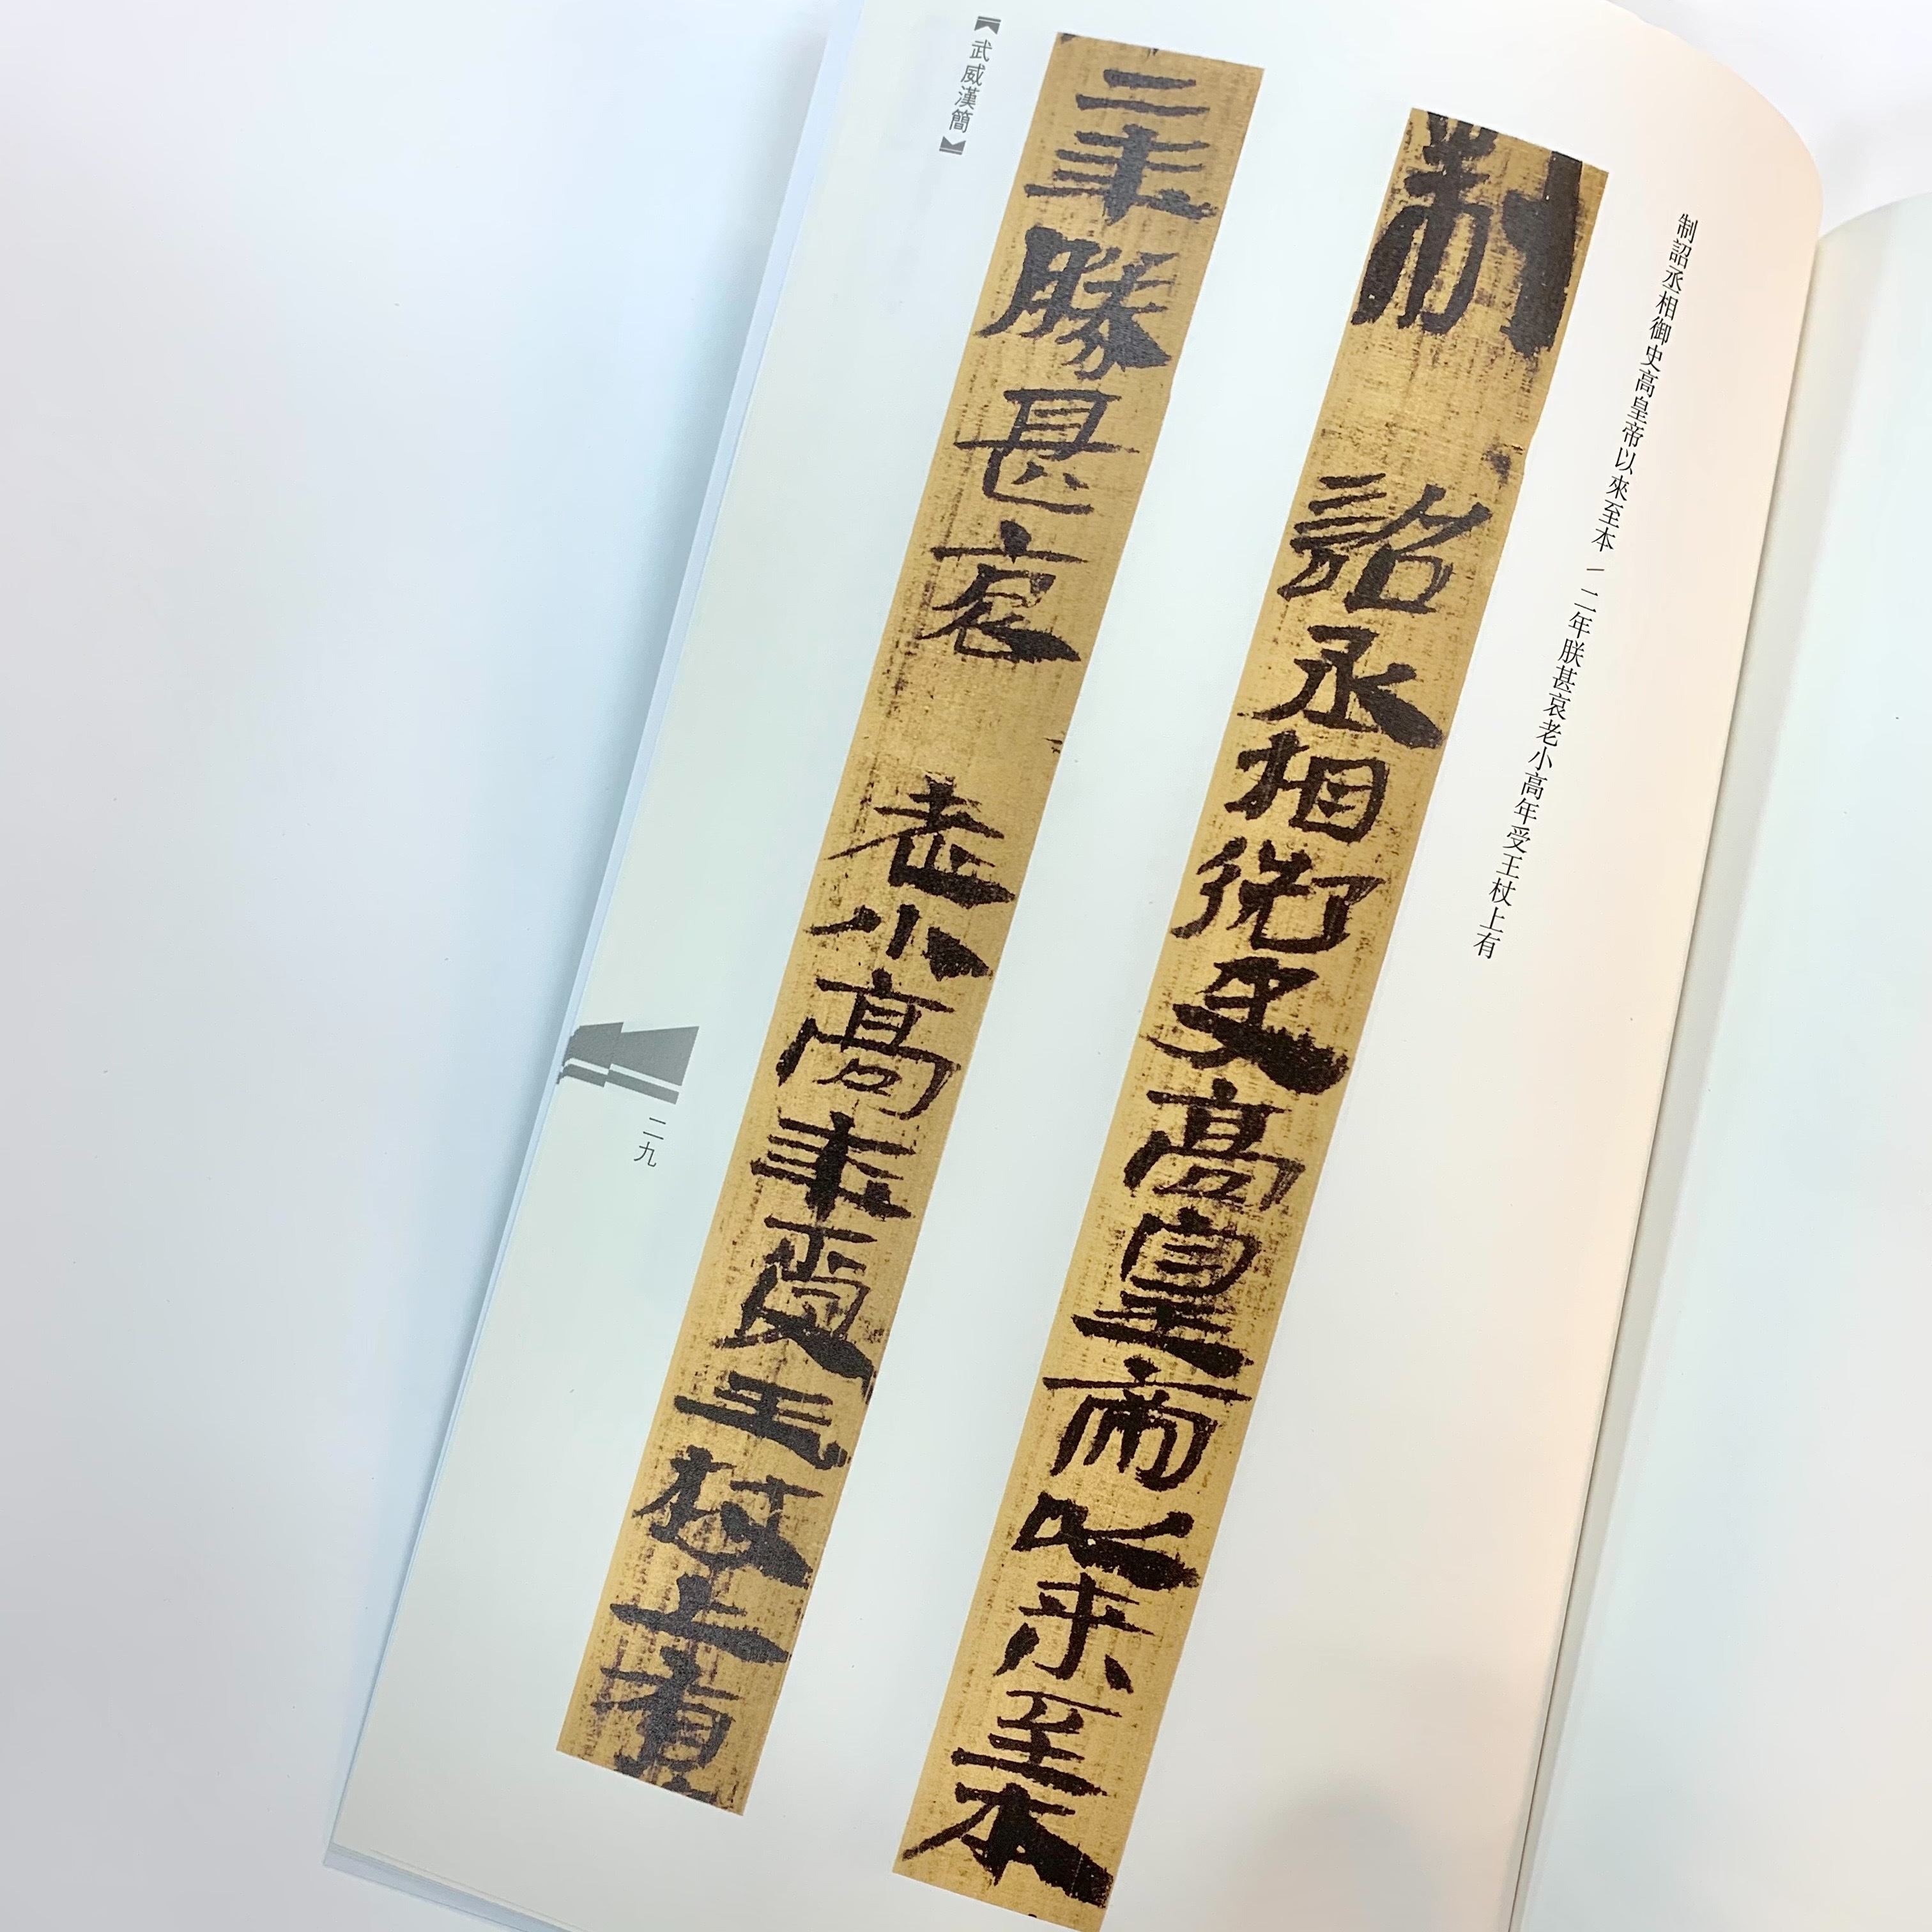 制詔丞相御史高皇帝以來至本 / 二年朕甚哀老小高年受王杖上有
制詔丞相御史高皇帝以來至本
二年朕甚哀老小高年受王杖上有
【武威漢簡】
二九